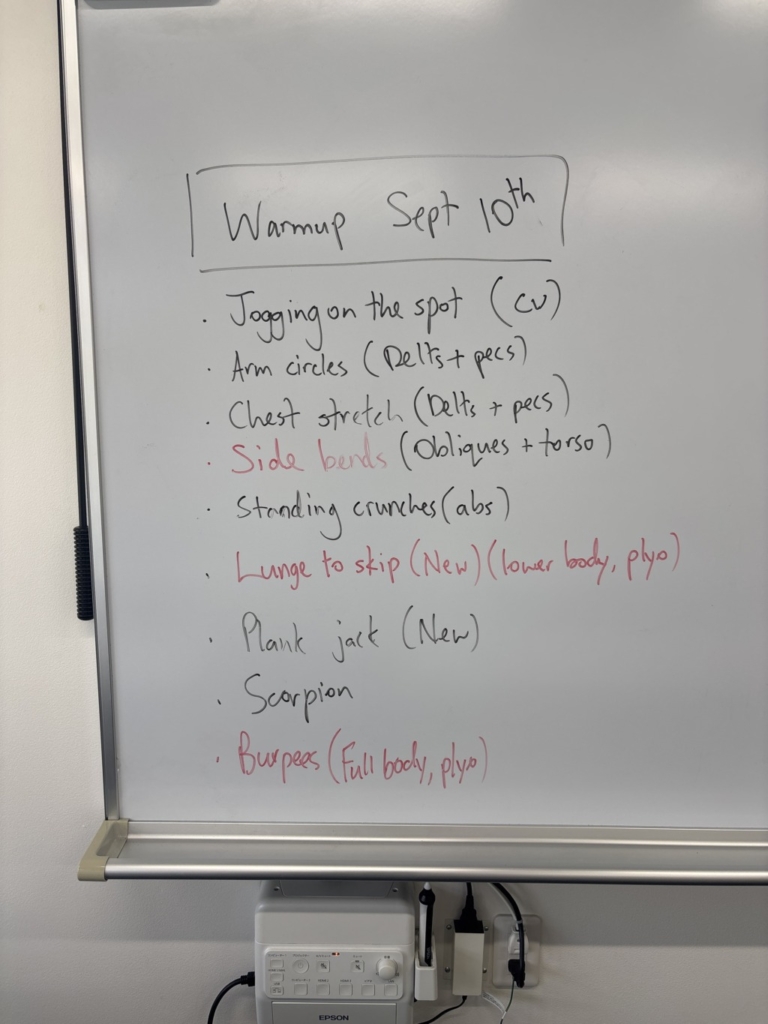 Warmup Sept 10th
· Jogging on the spot (CV)
· Arm circles (Delts + pecs)
· Chest stretch (Delts + pecs)
· Side bends (Obliques + torso)
· Standing crunches (abs)
· Lunge to skip (New) (lower body, plyo)
· Plank jack (New)
· Scorpion
· Burpees (Full body, plyo)
EPSON